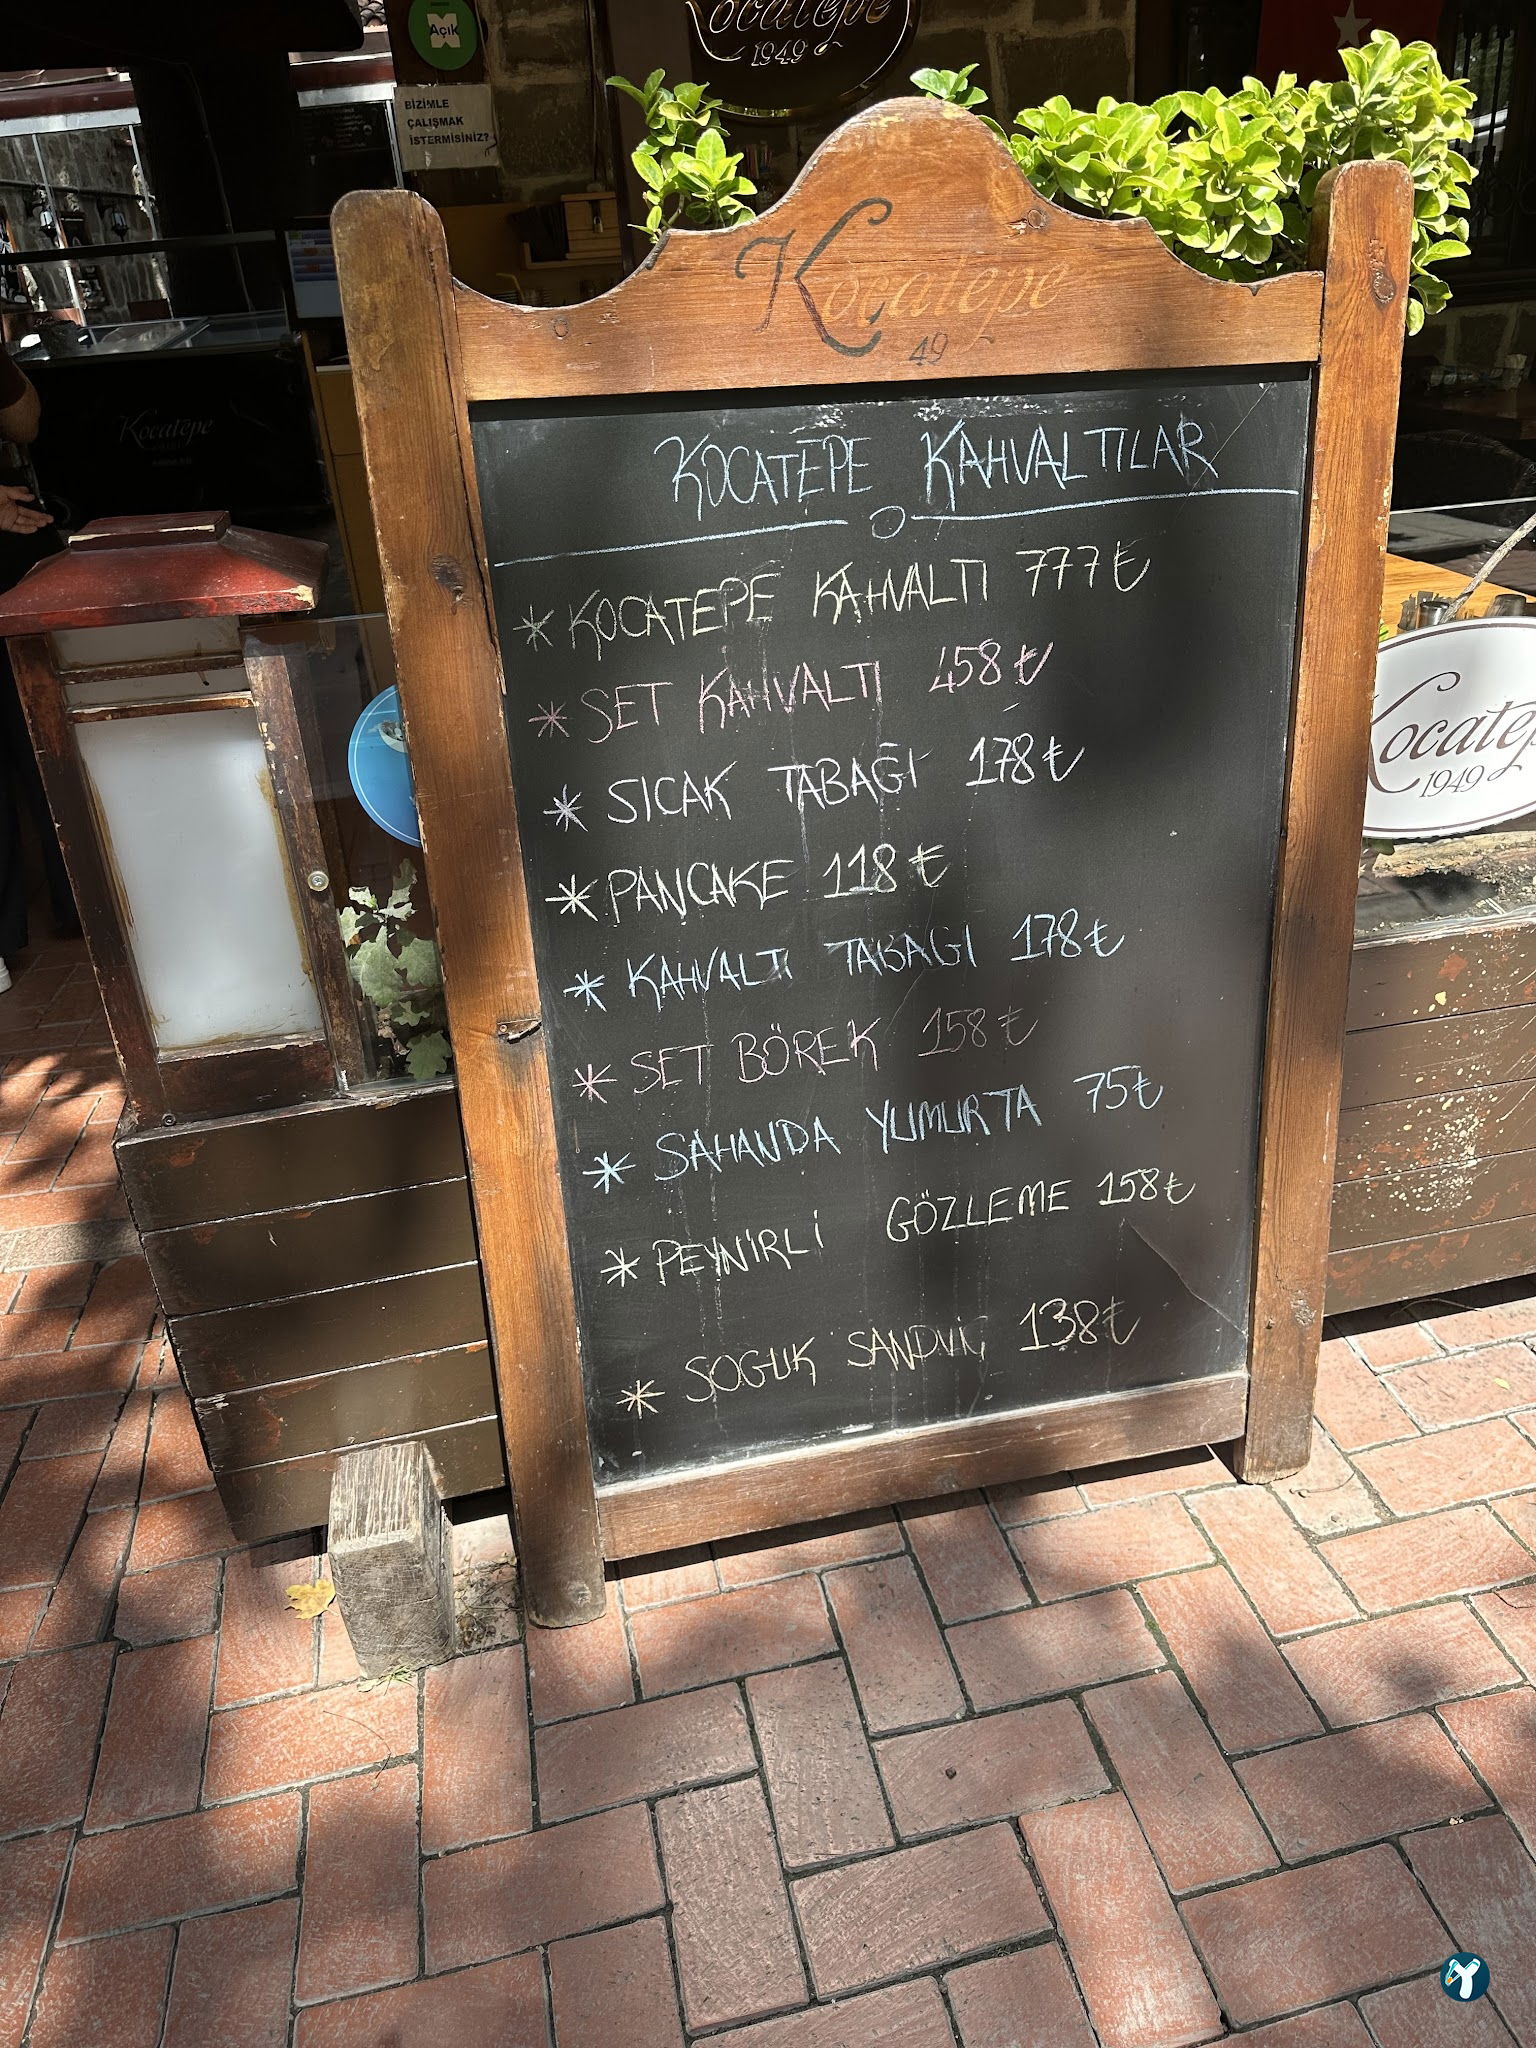 Açık
Kocatepe
1949
BİZİMLE
ÇALIŞMAK
İSTERMİSİNİZ?
Kocatepe
49
Kocatepe
KOCATEPE KAHVALTILAR
* KOCATEPE KAHVALTI 777₺
* SET KAHVALTI 458₺
* SICAK TABAĞI 178₺
* PANCAKE 118₺
* KAHVALTI TABAGI 178₺
* SET BÖREK 158₺
* SAHANDA YUMURTA 75₺
* PEYNİRLİ GÖZLEME 158₺
* SOGUK SANDVİÇ 138₺
Kocatepe
1949